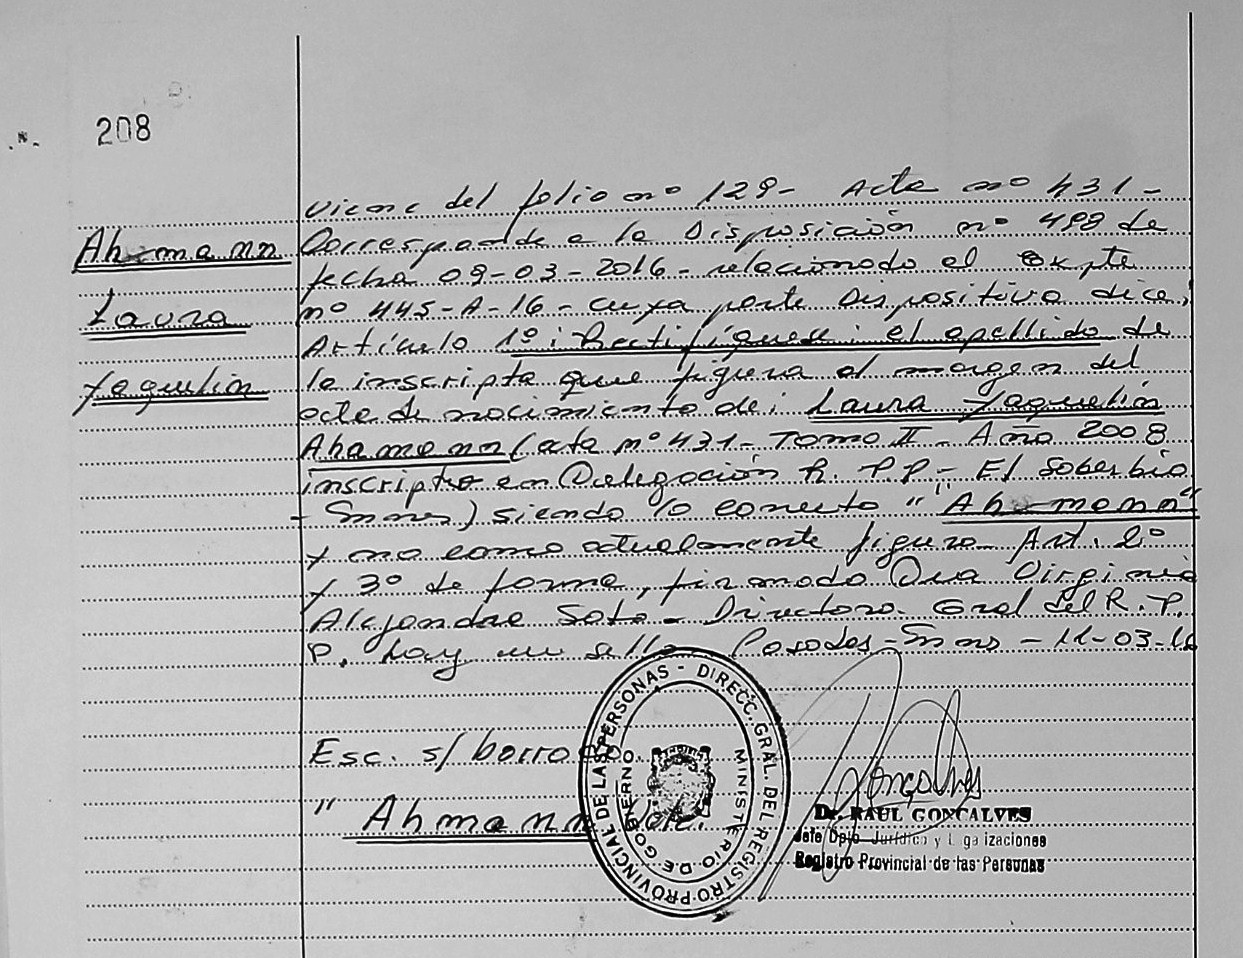 208
Ahmann
Laura
Yaquelin
Viene del folio nº 129- Acta nº 431-
Corresponde a la Disposición nº 498 de
fecha 09-03-2016- relacionado el Expte
nº 445-A-16- cuya parte Dispositiva dice:
Artículo 1º: Rectifíquese: el apellido de
la inscripta que figura al margen del
acta de nacimiento de: Laura Yaquelin
Ahamann (acta nº 431- Tomo II- Año 2008
inscripta en Delegación R.P.P- El Soberbio
- Smnes) siendo lo correcto "Ahmann"
y no como actualmente figura- Art. 2º
y 3º de forma, firmado Dra Virginia
Alejandra Soto- Directora Gral del R.P.
P. hay un sello. Posadas-Smns-11-03-16
Esc. s/ borrado.
"Ahmann" Vale.
DIRECC. GRAL. DEL REGISTRO PROVINCIAL DE LAS PERSONAS -
MINISTERIO DE GOBIERNO
Goncalves
Dr. RAUL GONCALVES
Jefe Dpto Jurídico y Legalizaciones
Registro Provincial de las Personas